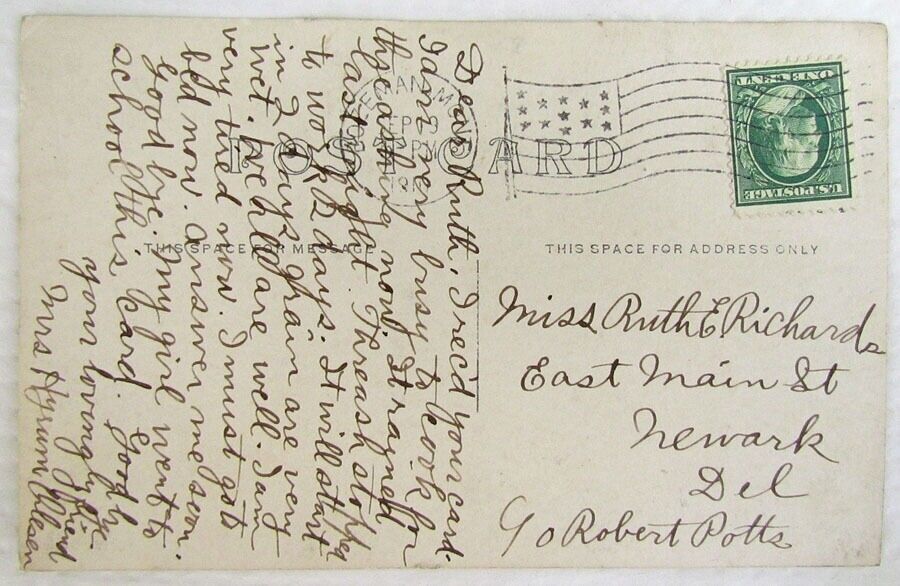 POST CARD
THIS SPACE FOR MESSAGE
THIS SPACE FOR ADDRESS ONLY
U.S. POSTAGE
ONE CENT
SEP 13
PM
Dear Ruth, I rec'd your card.
I am very busy to cook for
thrashing now. It rained
last night. Threash stopped
to work 2 days. It will start
in 2 days grain are very
wet. We all are well. I am
very tired now. I must go to
bed now. Answer me soon.
Good bye. My girl went to
school this card. Good by
your lovingly friend
Mrs Hyrum
Miss Ruth E Richards
East Main St
Newark
Del
c/o Robert Potts